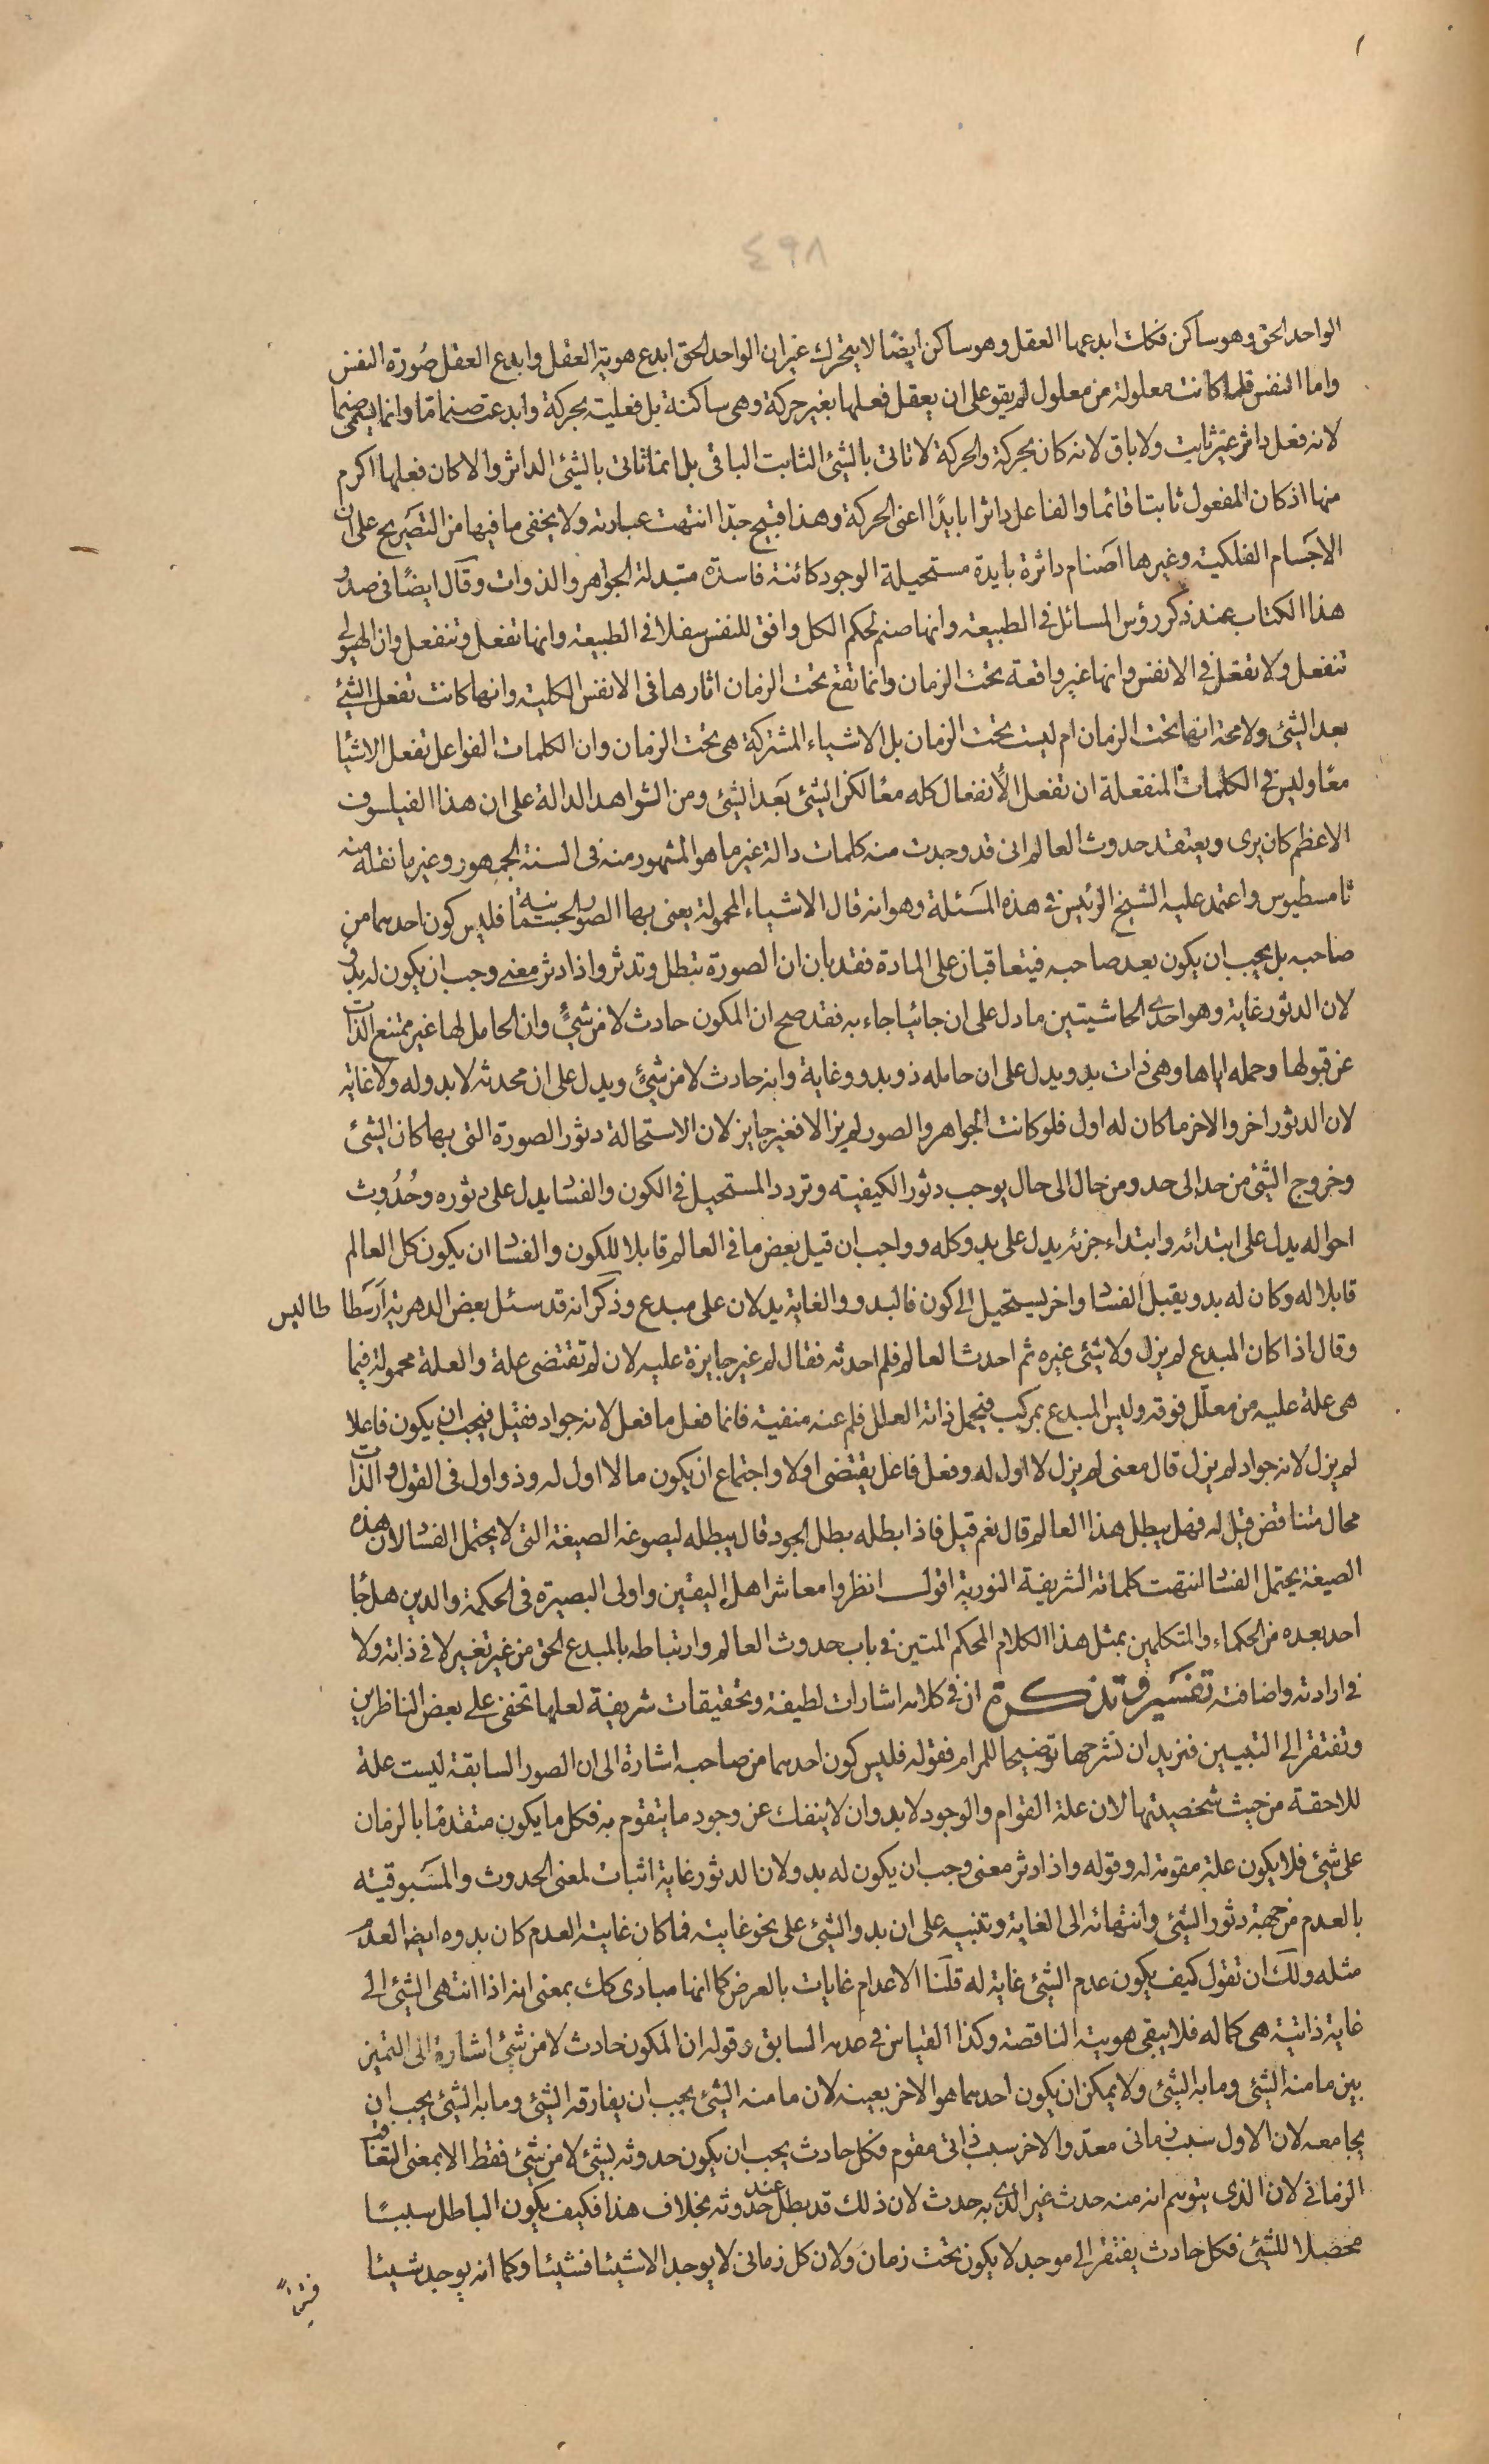 ٤٩٨
الواحد الحق وهو ساكن فكك ابدعها العقل وهو ساكن ايضًا لا يتحرك غير ان الواحد الحق ابدع هوية العقل وابدع العقل صُورة النفس
واما النفس فلما كانت معلولة من معلول لم يقو على ان يعقل فعلها بغير حركة وهى ساكنة بل فعليته بحركة وابدعت صنما مّا وانما يسمى صنما
لانه فعل داثر غير ثابت ولا باق لانه كان بحركة والحركة لا تاتى بالشئ الثابت الباقى بل انما تاتى بالشئ الداثر والا كان فعلها اكرم
منها اذ كان المفعول ثابتا قائما والفاعل داثرا بايدًا اعنى الحركة وهذا قبيح جدّا انتهت عبارته ولا يخفى ما فيها من التصريح على ان
الاجسام الفلكية وغيرها اصنام داثرة بايدة مستحيلة الوجود كائنة فاسدة متبدلة الجواهر والذوات وقال ايضًا فى صدر
هذا الكتاب عند ذكر رؤس المسائل فى الطبيعة وانها صنم لحكم الكل وافق للنفس سفلا فى الطبيعة وانها تفعل وتنفعل وان الهيولى
تنفعل ولا تفعل فى الانفس وانها غير واقعة تحت الزمان وانما تقع تحت الزمان اثارها فى الانفس الكلية وانها كانت تفعل الشئ
بعد الشئ ولا محة انها تحت الزمان ام ليست تحت الزمان بل الاشياء المشتركة هى تحت الزمان وان الكلمات الفواعل تفعل الاشيا
معًا وليس فى الكلمات المنفعلة ان تفعل الأنفعال كله معًا لكن الشئ بَعد الشئ ومن الشواهد الدالة على ان هذا الفيلسوف
الاعظم كان يرى ويعتقد حدوث العالم انى قد وجدت منه كلمات دالة غير ما هو المشهور منه فى السنة الجمهور وغير ما نقله منه
ثامسطيوس واعتمد عليه الشيخ الرئيس فى هذه المسئلة وهو انه قال الاشياء المحمولة يعنى بها الصور الجسمانية فليس كون احدهما من
صاحبه بل يجب ان يكون بعد صاحبه فيتعاقبان على المادة فقد بان ان الصورة تبطل وتدثر واذا دثر معنى وجب ان يكون له بدو
لان الدثور غاية وهو احدى الحاشيتين ما دل على ان جائيا جاء به فقد صح ان المكون حادث لا من شئ وان الحامل لها غير ممتنع الذات
عن قبولها وحمله اياها وهى ذات بدو يدل على ان حامله ذو بدو وغاية وانه حادث لا من شئ ويدل على ان محدثه لا بدو له ولا غاية
لان الدثور اخر والاخر ما كان له اول فلو كانت الجواهر والصور لم يزالا فغير جايز لان الاستحالة دثور الصورة التى بها كان الشئ
وخروج الشئ من حد الى حد ومن حال الى حال يوجب دثور الكيفية وتردد المستحيل فى الكون والفسا يدل على دثوره وحُدُوث
احواله يدل على ابتدائه وابتداء جزئه يدل على بدو كله وواجب ان قبل بعض ما فى العالم قابلا للكون والفسا ان يكون كل العالم
قابلا له وكان له بدو يقبل الفسا واخر يستحيل الى كون فالبدو والغاية يدلان على مبدع وذكر انه قد سئل بعض الدهرية ارسطا طاليس
وقال اذا كان المبدع لم يزل ولا شئ غيره ثم احدث العالم فلم احدثه فقال لم غير جايزة عليه لان لم تقتضى علة والعلة محمولة فيما
هى علة عليه من معلّل فوقه وليس المبدع بمركب فيحمل ذاته العلل فلم عنه منفية فانما فعل ما فعل لانه جواد فقيل فيجب ان يكون فاعلا
لم يزل لانه جواد لم يزل قال معنى لم يزل لا اول له وفعل فاعل يقتضى اولا واجتماع ان يكون ما لا اول له وذو اول فى القول والذات
محال متناقض قيل له فهل يبطل هذا العالم قال نعم قيل فاذا بطله بطل الجود قال يبطله ليصوغه الصيغة التى لا يحتمل الفسا لان هذه
الصيغة يحتمل الفسا انتهت كلماته الشريفة النورية اقول انظروا معاشر اهل اليقين واولى البصيرة فى الحكمة والدين هل جا
احد بعده من الحكماء والمتكلمين بمثل هذا الكلام المحكم المتين فى باب حدوث العالم وارتباطه بالمبدع الحق من غير تغير لا فى ذاته ولا
فى ارادته واضافته تفسير وتذكرة ان فى كلامه اشارات لطيفة وتحقيقات شريفة لعلها تخفى على بعض الناظرين
وتفتقر الى التبيين فنريد ان نشرحها توضيحا للمرام فقوله فليس كون احدهما من صاحبه اشارة الى ان الصور السابقة ليست علة
للاحقة من حيث شخصيتها لان علة القوام والوجود لا بد وان لا ينفك عن وجود ما يتقوم به فكل ما يكون متقدمًا بالزمان
على شئ فلا يكون علة مقومة له وقوله واذا دثر معنى وجب ان يكون له بدو لان الدثور غاية اثبات لمعنى الحدوث والمسَبوقيته
بالعدم من جهة دثور الشئ وانتهائه الى الغاية وتنبيه على ان بدو الشئ على نحو غايته فما كان غايته العدم كان بدوه ايضا العدم
مثله ولك ان تقول كيف يكون عدم الشئ غاية له قلنا الاعدام غايات بالعرض كما انها مبادى كك بمعنى انه اذا انتهى الشئ الى
غاية ذاتية هى كماله فلا يبقى هويته الناقصة وكذا القياس فى عدمه السابق وقوله ان المكون حادث لا من شئ اشارة الى التميز
بين ما منه الشئ وما به الشئ ولا يمكن ان يكون احدهما هو الاخر بعينه لان ما منه الشئ يجب ان يفارقه الشئ وما به الشئ يجب ان
يجامعه لان الاول سبب زمانى معدّ والاخر سبب ذاتى مقوم فكل حادث يجب ان يكون حدوثه بشئ لا من شئ فقط الا بمعنى التعاقب
الزمانى لان الذى يتوهم انه منه حدث غير الذى به حدث لان ذلك قد بطل عند حدوثه بخلاف هذا فكيف يكون الباطل سببًا
محصلا للشئ فكل حادث يفتقر الى موجد لا يكون تحت زمان ولان كل زمانى لا يوجد الا شيئا فشيئا وكما انه يوجد شيئا